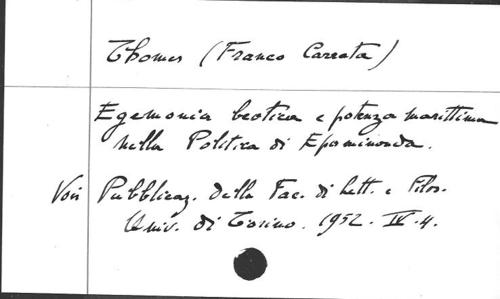 Thomes (Franco Carrata)
Egemonia beotica e potenza marittima
nella Politica di Epaminonda.
Voir Pubblicaz. della Fac. di Lett. e Filos.
Univ. di Torino. 1952. IV. 4.